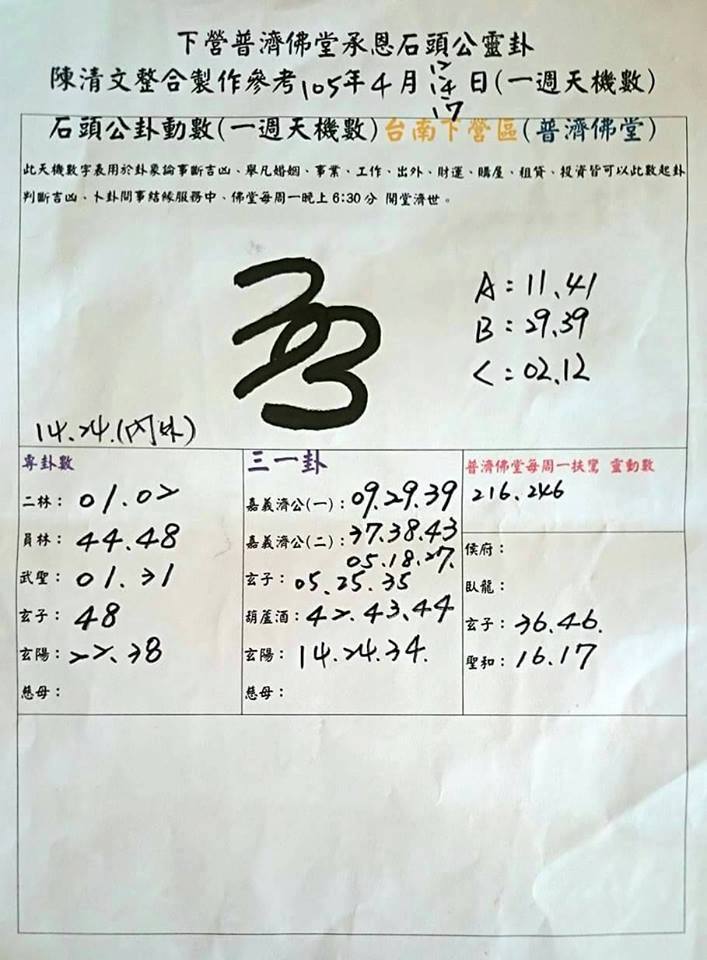 下營普濟佛堂承恩石頭公靈卦
陳清文整合製作參考105年4月12 14 17日(一週天機數)
石頭公卦動數(一週天機數)台南下營區(普濟佛堂)
此天機數字表用於卦象論事斷吉凶、舉凡婚姻、事業、工作、出外、財運、購屋、租貸、投資皆可以此數起卦
判斷吉凶、卜卦問事結緣服務中、佛堂每周一晚上6:30分 開堂濟世。
A:11.41
B:29.39
C:02.12
14.24.(內外)
專卦數
二林:01.02
員林:44.48
武聖:01.31
玄子:48
玄陽:22.38
慈母:
三一卦
嘉義濟公(一):09.29.39
嘉義濟公(二):37.38.43
05.18.27.
玄子:05.25.35
葫蘆酒:42.43.44
玄陽:14.24.34.
慈母:
普濟佛堂每周一扶鸞 靈動數
216.246
侯府:
臥龍:
玄子:36.46.
聖和:16.17